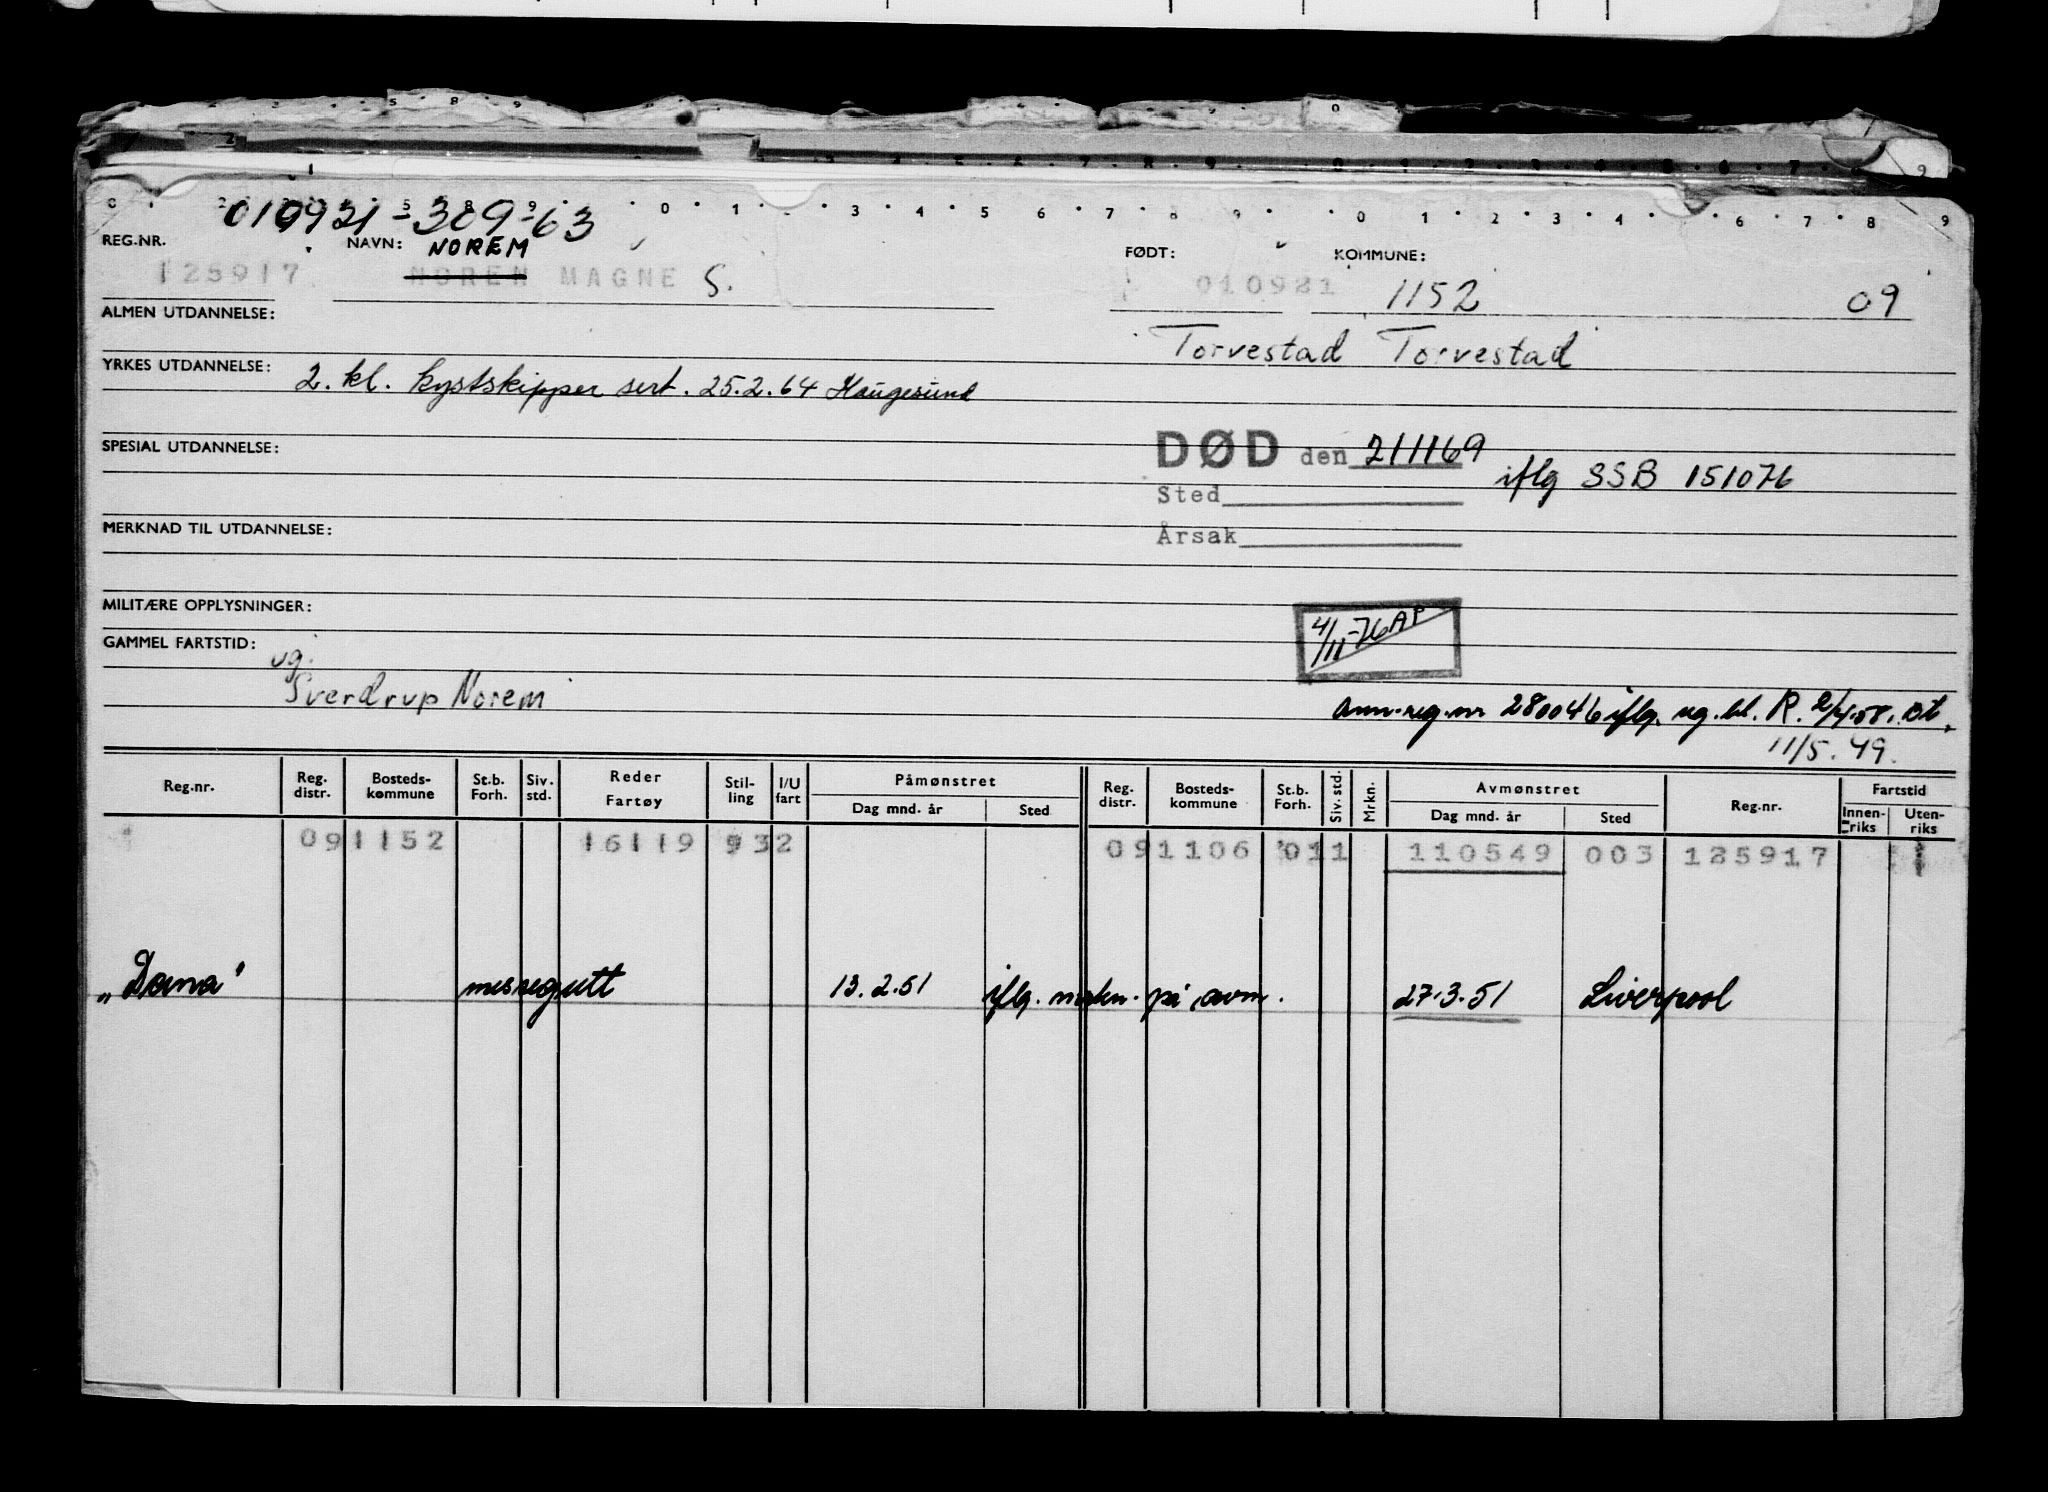 010921-309-63
REG.NR. NAVN: NOREM FØDT: KOMMUNE:
125917 NOREN MAGNE S. 010921 1152 09
ALMEN UTDANNELSE: Torvestad Torvestad
YRKES UTDANNELSE: 2. kl. kystskipper sert. 25.2.64 Haugesund
SPESIAL UTDANNELSE: DØD den 211169 iflg SSB 151076
Sted
MERKNAD TIL UTDANNELSE: Årsak
MILITÆRE OPPLYSNINGER: 4/11-76 AP
GAMMEL FARTSTID:
og.
Sverdrup Norem
ann.reg.nr 280046 iflg. reg.bl. R. 2/4.58. BT.
11/5.49.
Reg.nr. Reg. distr. Bosteds-kommune St.b. Forh. Siv. std. Reder Fartøy Stil-ling I/U fart Påmønstret Dag mnd. år Sted Reg. distr. Bosteds-kommune St.b. Forh. Siv. std. Mrkn. Avmønstret Dag mnd. år Sted Reg.nr. Fartstid Innen-riks Uten-riks
09 1152 16119 932 09 1106 011 110549 003 125917
„Dana" messegutt 13.2.51 iflg. mrkn. på avm. 27.3.51 Liverpool